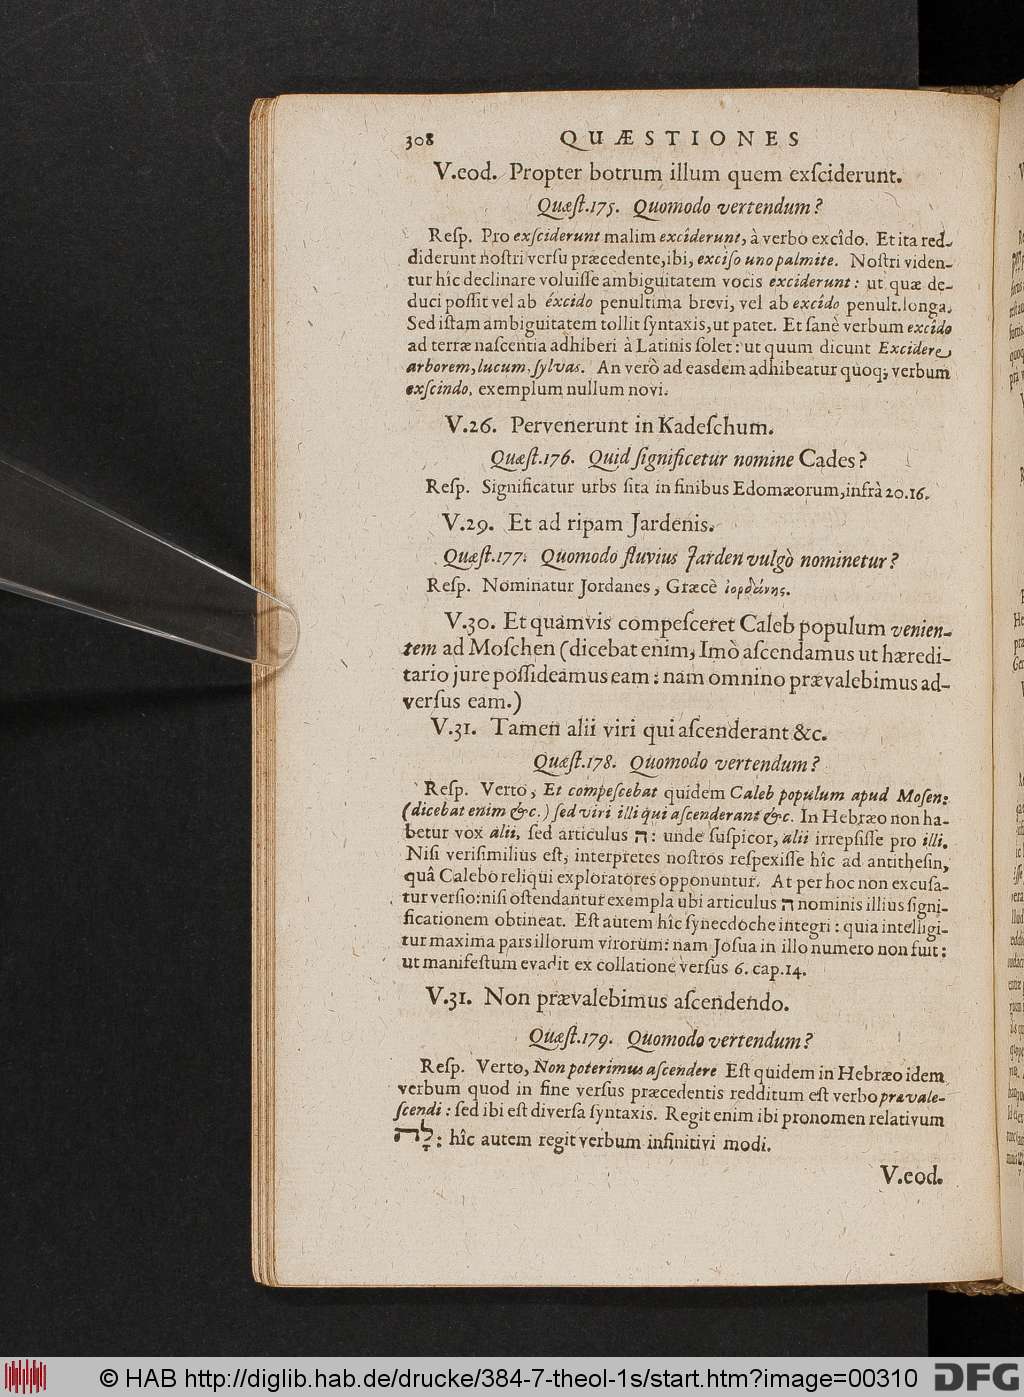 308 QUÆSTIONES
V.eod. Propter botrum illum quem exſciderunt.
Quæſt.175. Quomodo vertendum?
Reſp. Pro exſciderunt malim excîderunt, à verbo excîdo. Et ita red-
diderunt noſtri verſu præcedente, ibi, exciſo uno palmite. Noſtri viden-
tur hîc declinare voluiſſe ambiguitatem vocis exciderunt: ut quæ de-
duci poſſit vel ab éxcido penultima brevi, vel ab excîdo penult. longa.
Sed iſtam ambiguitatem tollit ſyntaxis, ut patet. Et ſanè verbum excîdo
ad terræ naſcentia adhiberi à Latinis ſolet: ut quum dicunt Excidere
arborem, lucum, ſylvas. An verò ad easdem adhibeatur quoq; verbum
exſcindo, exemplum nullum novi.
V.26. Pervenerunt in Kadeſchum.
Quæſt.176. Quid ſignificetur nomine Cades?
Reſp. Significatur urbs ſita in finibus Edomæorum, infrà 20.16.
V.29. Et ad ripam Jardenis.
Quæſt.177. Quomodo fluvius Jarden vulgò nominetur?
Reſp. Nominatur Jordanes, Græcè ἰορδάνης.
V.30. Et quamvis compeſceret Caleb populum venien-
tem ad Moſchen (dicebat enim, Imò aſcendamus ut hæredi-
tario jure poſſideamus eam: nam omnino prævalebimus ad-
verſus eam.)
V.31. Tamen alii viri qui aſcenderant &c.
Quæſt.178. Quomodo vertendum?
Reſp. Verto, Et compeſcebat quidem Caleb populum apud Moſen:
(dicebat enim &c.) ſed viri illi qui aſcenderant &c. In Hebræo non ha-
betur vox alii, ſed articulus ה: unde ſuſpicor, alii irrepſiſſe pro illi.
Niſi veriſimilius eſt, interpretes noſtros reſpexiſſe hîc ad antitheſin,
quâ Calebo reliqui exploratores opponuntur. At per hoc non excuſa-
tur verſio: niſi oſtendantur exempla ubi articulus ה nominis illius ſigni-
ficationem obtineat. Eſt autem hîc ſynecdoche integri: quia intelligi-
tur maxima pars illorum virorum: nam Joſua in illo numero non fuit:
ut manifeſtum evadit ex collatione verſus 6. cap.14.
V.31. Non prævalebimus aſcendendo.
Quæſt.179. Quomodo vertendum?
Reſp. Verto, Non poterimus aſcendere Eſt quidem in Hebræo idem
verbum quod in fine verſus præcedentis redditum eſt verbo prævale-
ſcendi: ſed ibi eſt diverſa ſyntaxis. Regit enim ibi pronomen relativum
לָהּ: hîc autem regit verbum infinitivi modi.
V.eod.
© HAB http://diglib.hab.de/drucke/384-7-theol-1s/start.htm?image=00310 DFG